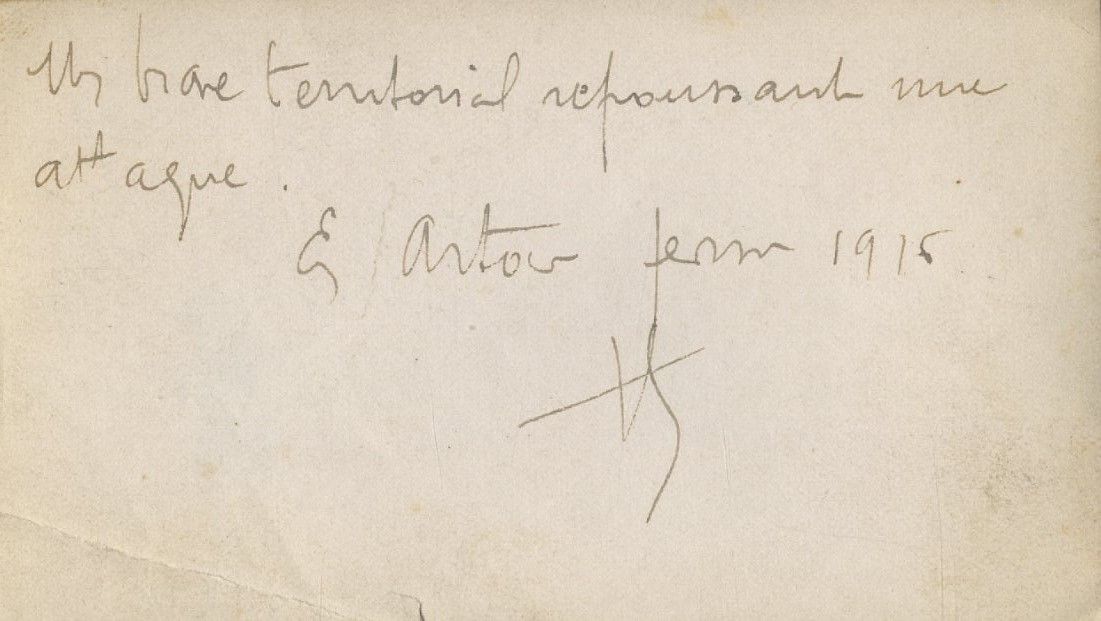 Un brave territorial repoussant une
attaque.
En Artois fevrier 1915